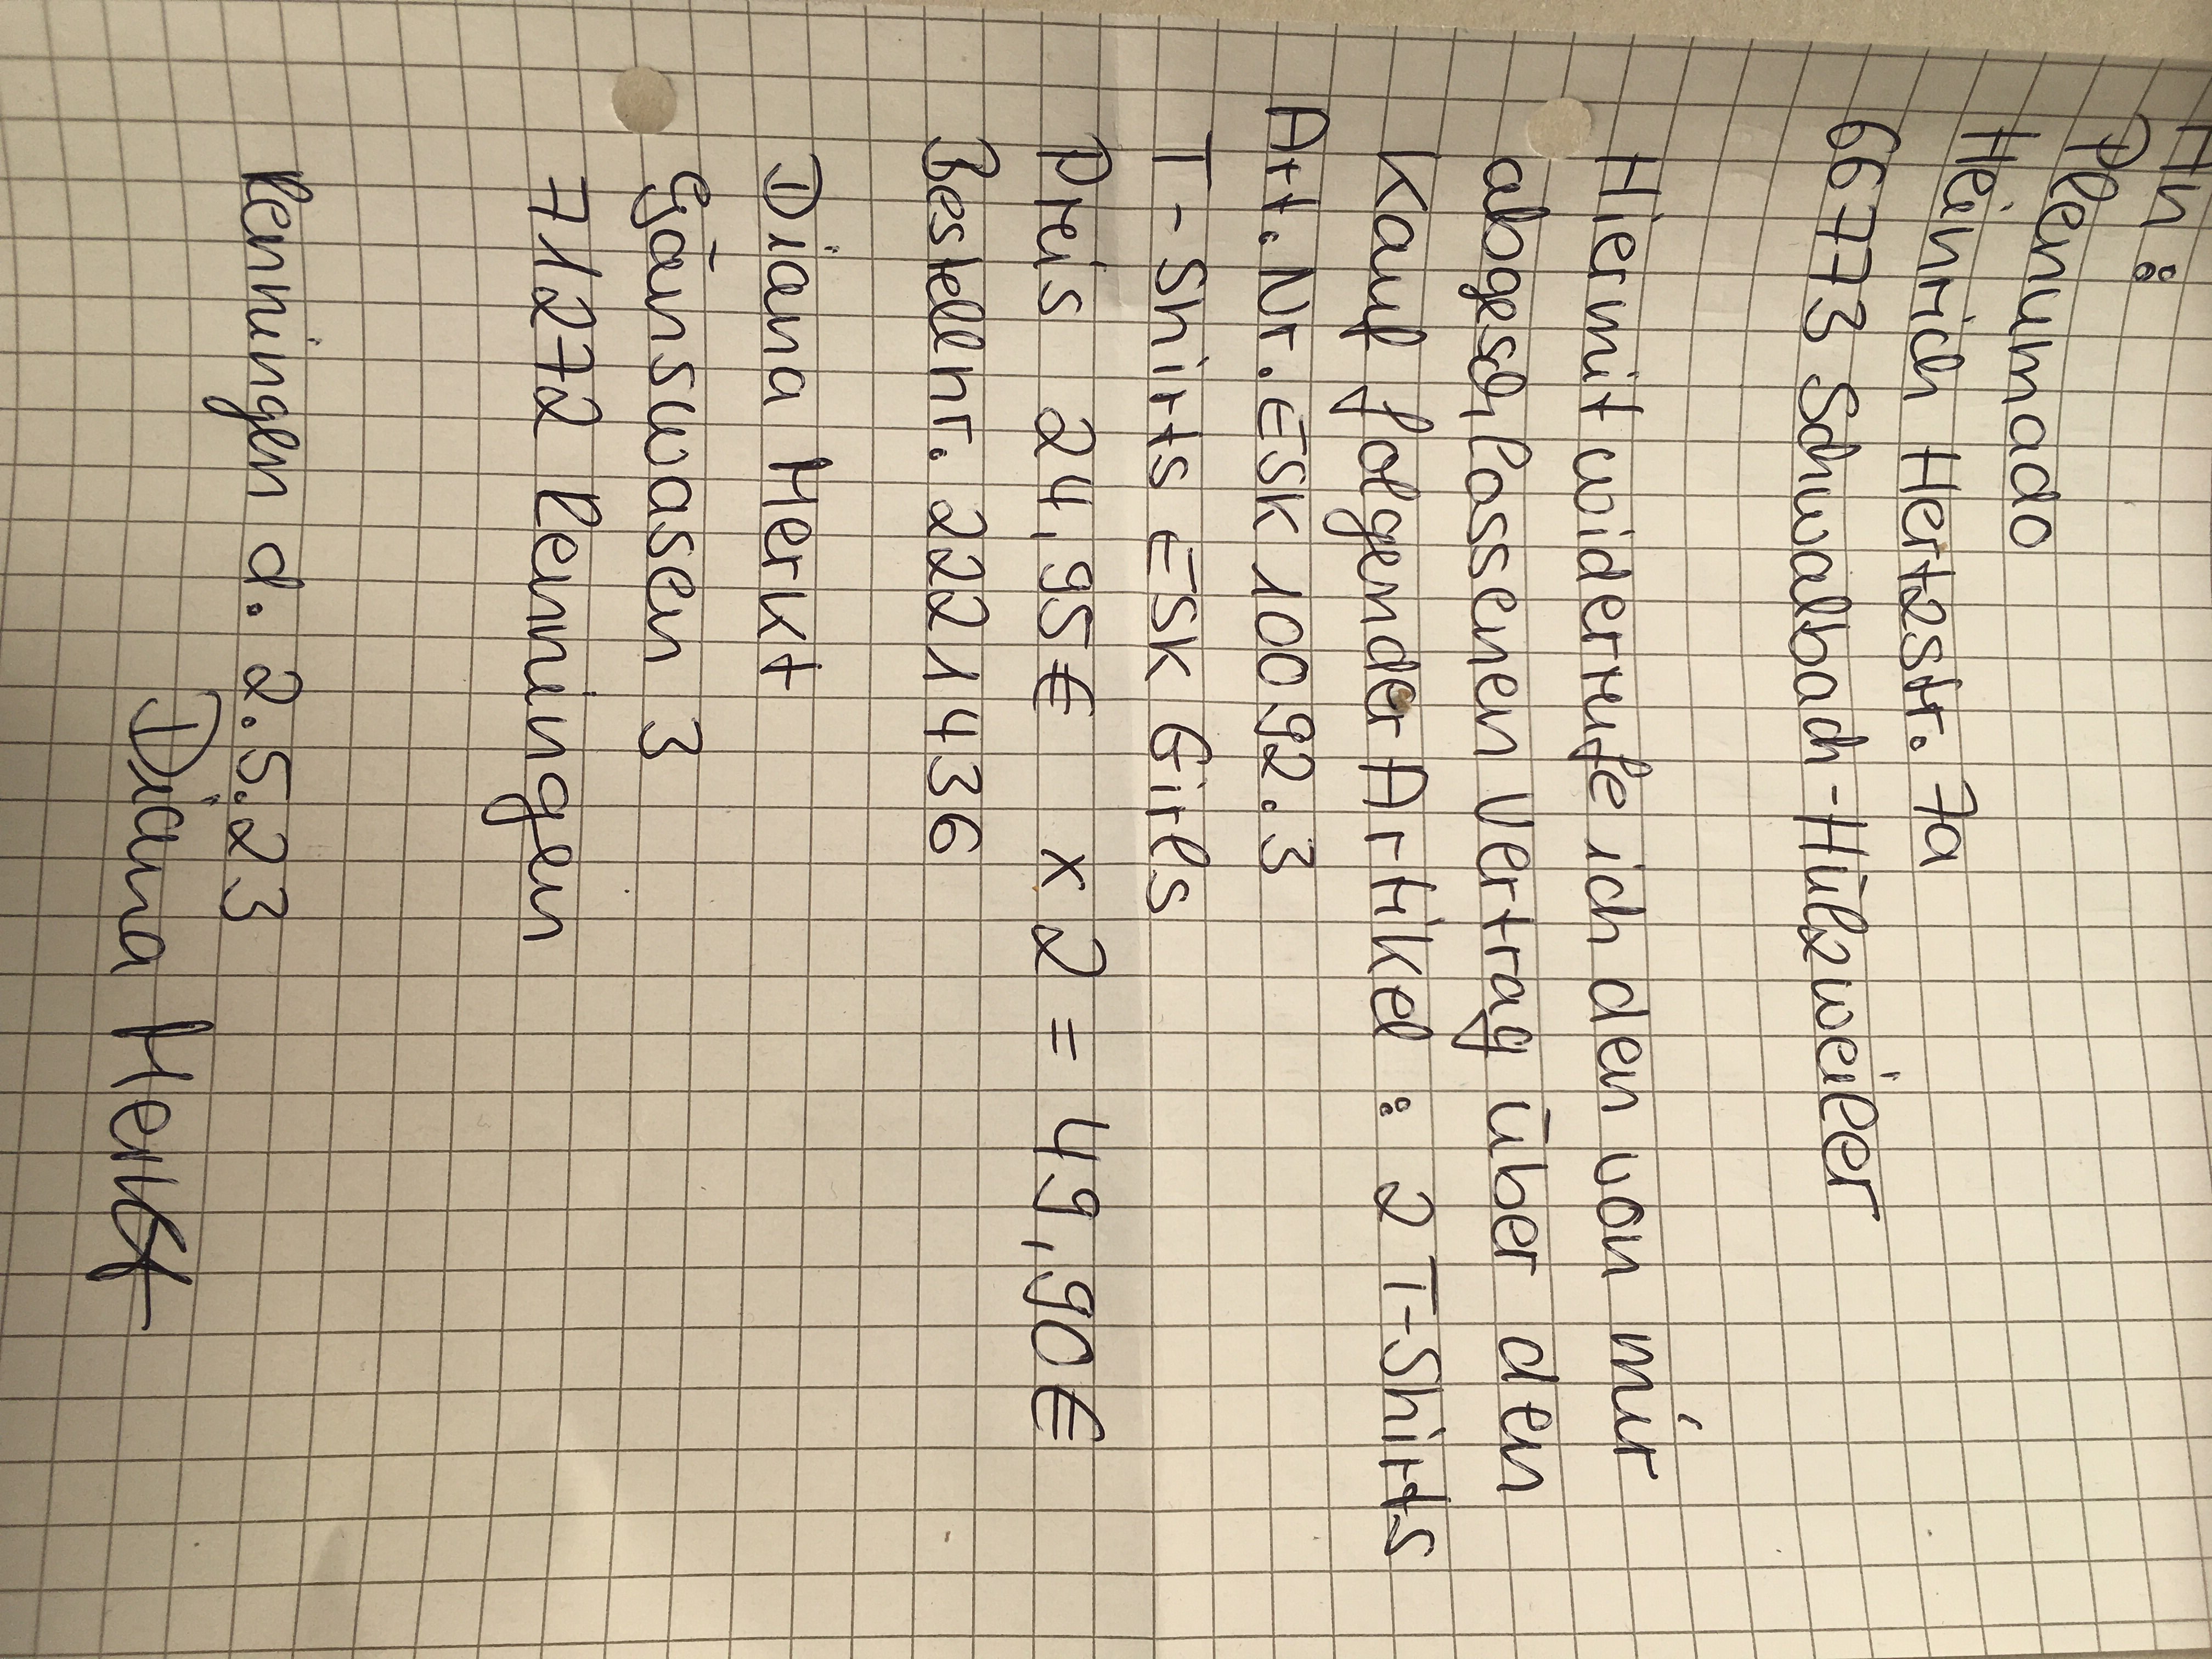 An:
Plenumado
Heinrich Hertzstr. 7a
66773 Schwalbach-Hülzweiler
Hiermit widerrufe ich den von mir
abgeschlossenen Vertrag über den
Kauf folgender Artikel: 2 T-Shirts
Art.Nr. ESK 10092.3
T-Shirts ESK Girls
Preis 24,95€ x 2 = 49,90€
Bestellnr. 2221436
Diana Herkt
Gänswasen 3
71272 Renningen
Renningen d. 2.5.23
Diana Herkt